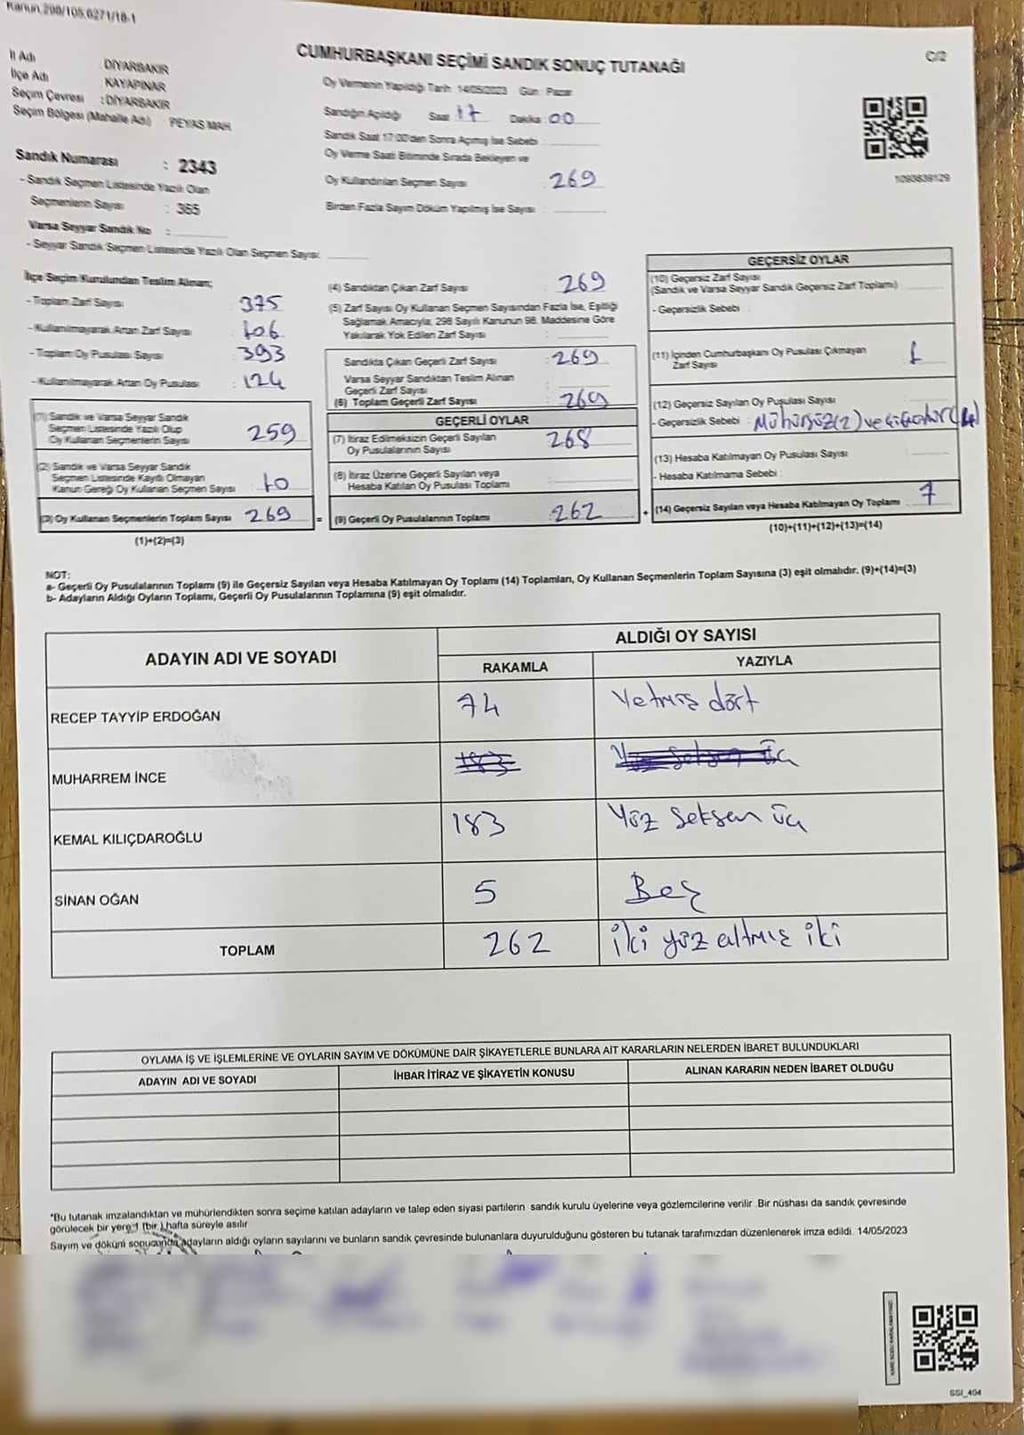 Kanun.298/105,6271/18-1
İl Adı : DİYARBAKIR
İlçe Adı KAYAPINAR
Seçim Çevresi : DİYARBAKIR
Seçim Bölgesi (Mahalle Adı) PEYAS MAH.
CUMHURBAŞKANI SEÇİMİ SANDIK SONUÇ TUTANAĞI
C/2
Oy Vermenin Yapıldığı Tarih 14/05/2023 Gün : Pazar
Sandığın Açıldığı Saat 17 Dakika : 00
Sandık Saat 17:00'den Sonra Açılmış İse Sebebi
Oy Verme Saati Bitiminde Sırada Bekleyen ve
Oy Kullandırılan Seçmen Sayısı : 269
Birden Fazla Sayım Döküm Yapılmış İse Sayısı :
1090639129
Sandık Numarası : 2343
- Sandık Seçmen Listesinde Yazılı Olan
Seçmenlerin Sayısı : 365
Varsa Seyyar Sandık No :
- Seyyar Sandık Seçmen Listesinde Yazılı Olan Seçmen Sayısı:
İlçe Seçim Kurulundan Teslim Alınan;
- Toplam Zarf Sayısı : 375
- Kullanılmayarak Artan Zarf Sayısı : 106
- Toplam Oy Pusulası Sayısı : 393
- Kullanılmayarak Artan Oy Pusulası : 124
(1) Sandık ve Varsa Seyyar Sandık
Seçmen Listesinde Yazılı Olup
Oy Kullanan Seçmenlerin Sayısı 259
(2) Sandık ve Varsa Seyyar Sandık
Seçmen Listesinde Kayıtlı Olmayan
Kanun Gereği Oy Kullanan Seçmen Sayısı 10
(3) Oy Kullanan Seçmenlerin Toplam Sayısı 269
(1)+(2)=(3)
(4) Sandıktan Çıkan Zarf Sayısı 269
(5) Zarf Sayısı Oy Kullanan Seçmen Sayısından Fazla İse, Eşitliği
Sağlamak Amacıyla, 298 Sayılı Kanunun 98. Maddesine Göre
Yakılarak Yok Edilen Zarf Sayısı :
Sandıkta Çıkan Geçerli Zarf Sayısı : 269
Varsa Seyyar Sandıktan Teslim Alınan
Geçerli Zarf Sayısı :
(6) Toplam Geçerli Zarf Sayısı : 269
GEÇERLİ OYLAR
(7) İtiraz Edilmeksizin Geçerli Sayılan
Oy Pusulalarının Sayısı 268
(8) İtiraz Üzerine Geçerli Sayılan veya
Hesaba Katılan Oy Pusulası Toplamı
= (9) Geçerli Oy Pusulalarının Toplamı : 262 +
GEÇERSİZ OYLAR
(10) Geçersiz Zarf Sayısı
(Sandık ve Varsa Seyyar Sandık Geçersiz Zarf Toplamı)
- Geçersizlik Sebebi :
(11) İçinden Cumhurbaşkanı Oy Pusulası Çıkmayan
Zarf Sayısı 1
(12) Geçersiz Sayılan Oy Pusulası Sayısı
- Geçersizlik Sebebi : Mühürsüz(2) ve (4)
(13) Hesaba Katılmayan Oy Pusulası Sayısı
- Hesaba Katılmama Sebebi :
(14) Geçersiz Sayılan veya Hesaba Katılmayan Oy Toplamı 7
(10)+(11)+(12)+(13)=(14)
NOT:
a- Geçerli Oy Pusulalarının Toplamı (9) ile Geçersiz Sayılan veya Hesaba Katılmayan Oy Toplamı (14) Toplamları, Oy Kullanan Seçmenlerin Toplam Sayısına (3) eşit olmalıdır. (9)+(14)=(3)
b- Adayların Aldığı Oyların Toplamı, Geçerli Oy Pusulalarının Toplamına (9) eşit olmalıdır.
ADAYIN ADI VE SOYADI
ALDIĞI OY SAYISI
RAKAMLA YAZIYLA
RECEP TAYYİP ERDOĞAN 74 Yetmiş dört
MUHARREM İNCE 183 Yüz Seksen üç
KEMAL KILIÇDAROĞLU 183 Yüz Seksen üç
SİNAN OĞAN 5 Beş
TOPLAM 262 İki yüz altmış iki
OYLAMA İŞ VE İŞLEMLERİNE VE OYLARIN SAYIM VE DÖKÜMÜNE DAİR ŞİKAYETLERLE BUNLARA AİT KARARLARIN NELERDEN İBARET BULUNDUKLARI
ADAYIN ADI VE SOYADI İHBAR İTİRAZ VE ŞİKAYETİN KONUSU ALINAN KARARIN NEDEN İBARET OLDUĞU
*Bu tutanak imzalandıktan ve mühürlendikten sonra seçime katılan adayların ve talep eden siyasi partilerin sandık kurulu üyelerine veya gözlemcilerine verilir. Bir nüshası da sandık çevresinde
görülecek bir yere 1 (bir) hafta süreyle asılır
Sayım ve döküm sonucunda adayların aldığı oyların sayılarını ve bunların sandık çevresinde bulunanlara duyurulduğunu gösteren bu tutanak tarafımızdan düzenlenerek imza edildi. 14/05/2023
SSI_404